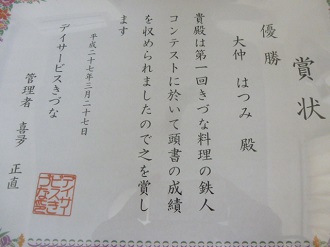 賞状
優勝
大仲 はつみ 殿
貴殿は第一回きづな料理の鉄人
コンテストに於いて頭書の成績
を収められましたので之を賞し
ます
平成二十七年三月二十七日
デイサービスきづな
管理者 喜多 正直